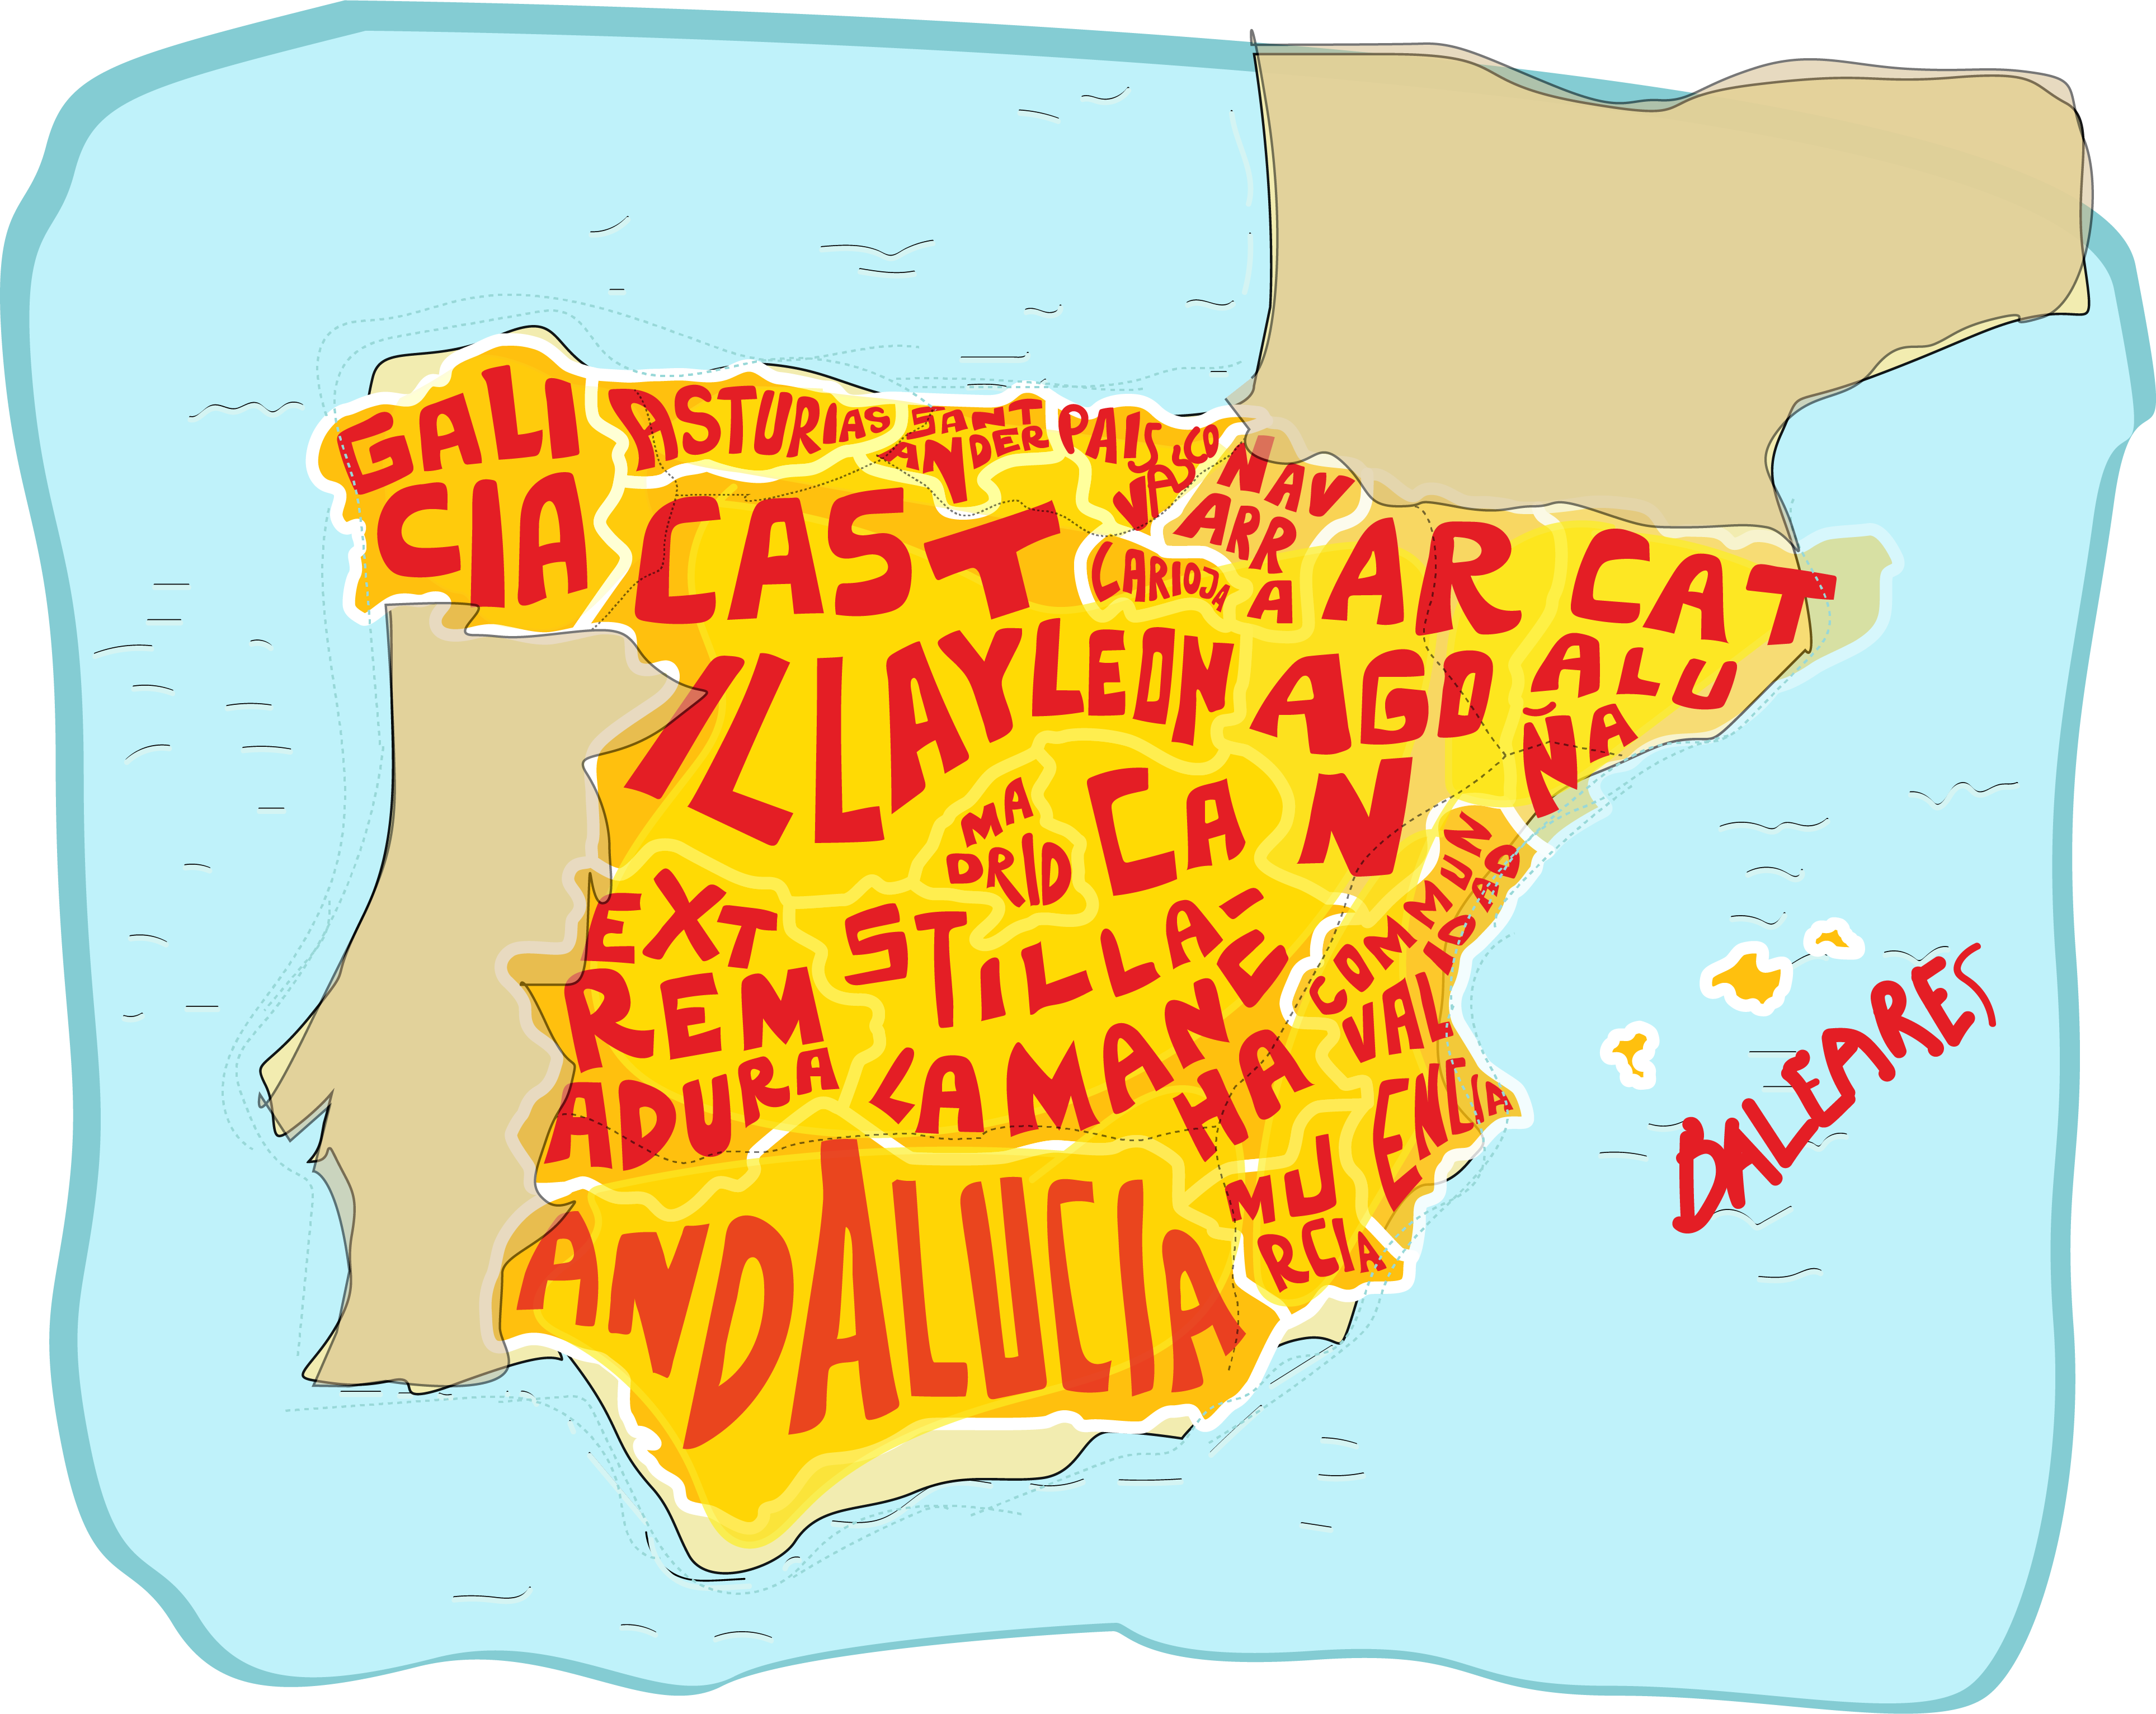 GALI
CIA
ASTURIAS
SANT
ANDER
PAIS
VASCO
NAV
ARR
A
LARIOJA
CAST
ILLAYLEON
AR
AGO
N
CAT
ALU
ÑA
MA
DRID
CA
STILLA-
LAMANCHA
EXT
REM
ADURA
VAL
ENCIA
MU
RCIA
ANDALUCIA
BALEARES